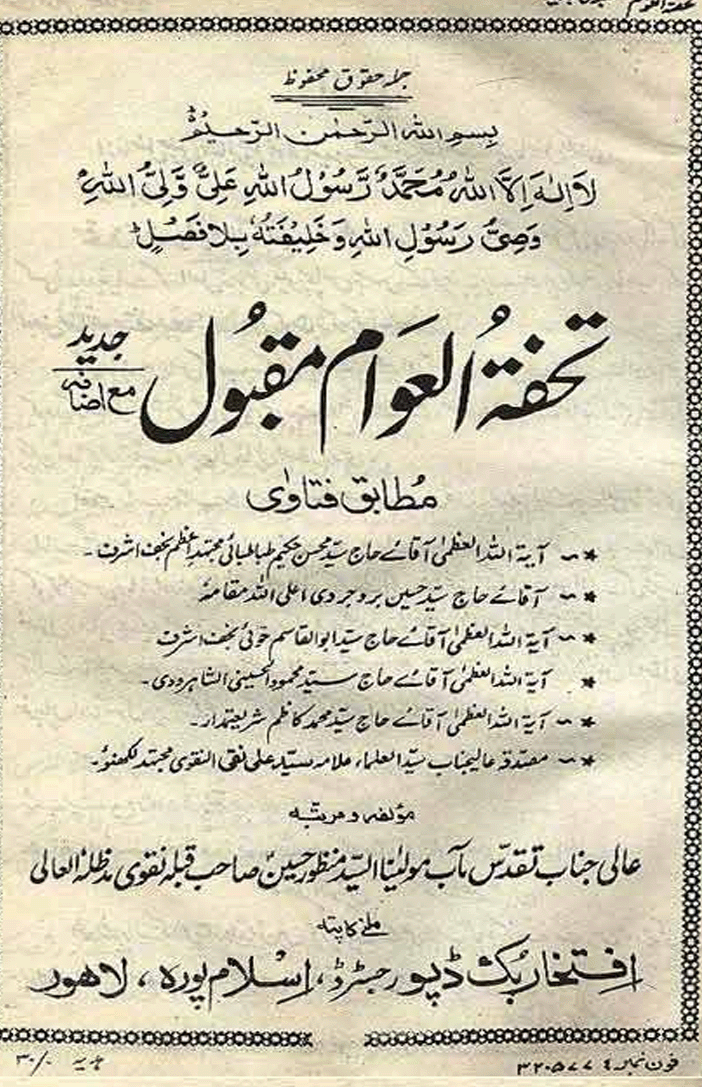 جملہ حقوق محفوظ
بِسْمِ اللهِ الرَّحْمٰنِ الرَّحِيْمِ
لَا اِلٰهَ اِلَّا اللهُ مُحَمَّدٌ رَّسُوْلُ اللهِ عَلِيٌّ وَّلِيُّ اللهِ
وَصِيُّ رَسُوْلِ اللهِ وَخَلِيْفَتُهٗ بِلَا فَصْلٍ
تحفۃُ العَوام مقبُول جدید
مع اضافہ
مُطابق فتاوٰی
* آیۃ اللہ العظمیٰ آقائے حاج سیّد محسن حکیم طباطبائی مجتہدِ اعظم نجف اشرف۔
* آقائے حاج سیّد حسین بروجردی اعلی اللہ مقامہٗ
* آیۃ اللہ العظمیٰ آقائے حاج سیّد ابوالقاسم خوئی نجف اشرف
* آیۃ اللہ العظمیٰ آقائے حاج سیّد محمود الحسینی الشاہرودی۔
* آیۃ اللہ العظمیٰ آقائے حاج سیّد محمد کاظم شریعتمدار۔
* مصدقہ عالیجناب سیّد العلماء علامہ سیّد علی نقی النقوی مجتہد لکھنؤ۔
مؤلفہ و مرتبہ
عالی جناب تقدّس مآب مولیٰنا السیّد منظور حسین صاحب قبلہ نقوی مدظلہٗ العالی
ملنے کا پتہ
افتخار بُک ڈپو رجسٹرڈ، اِسلام پورہ، لاہور
فون نمبر
ہدیہ ۳۰/۰